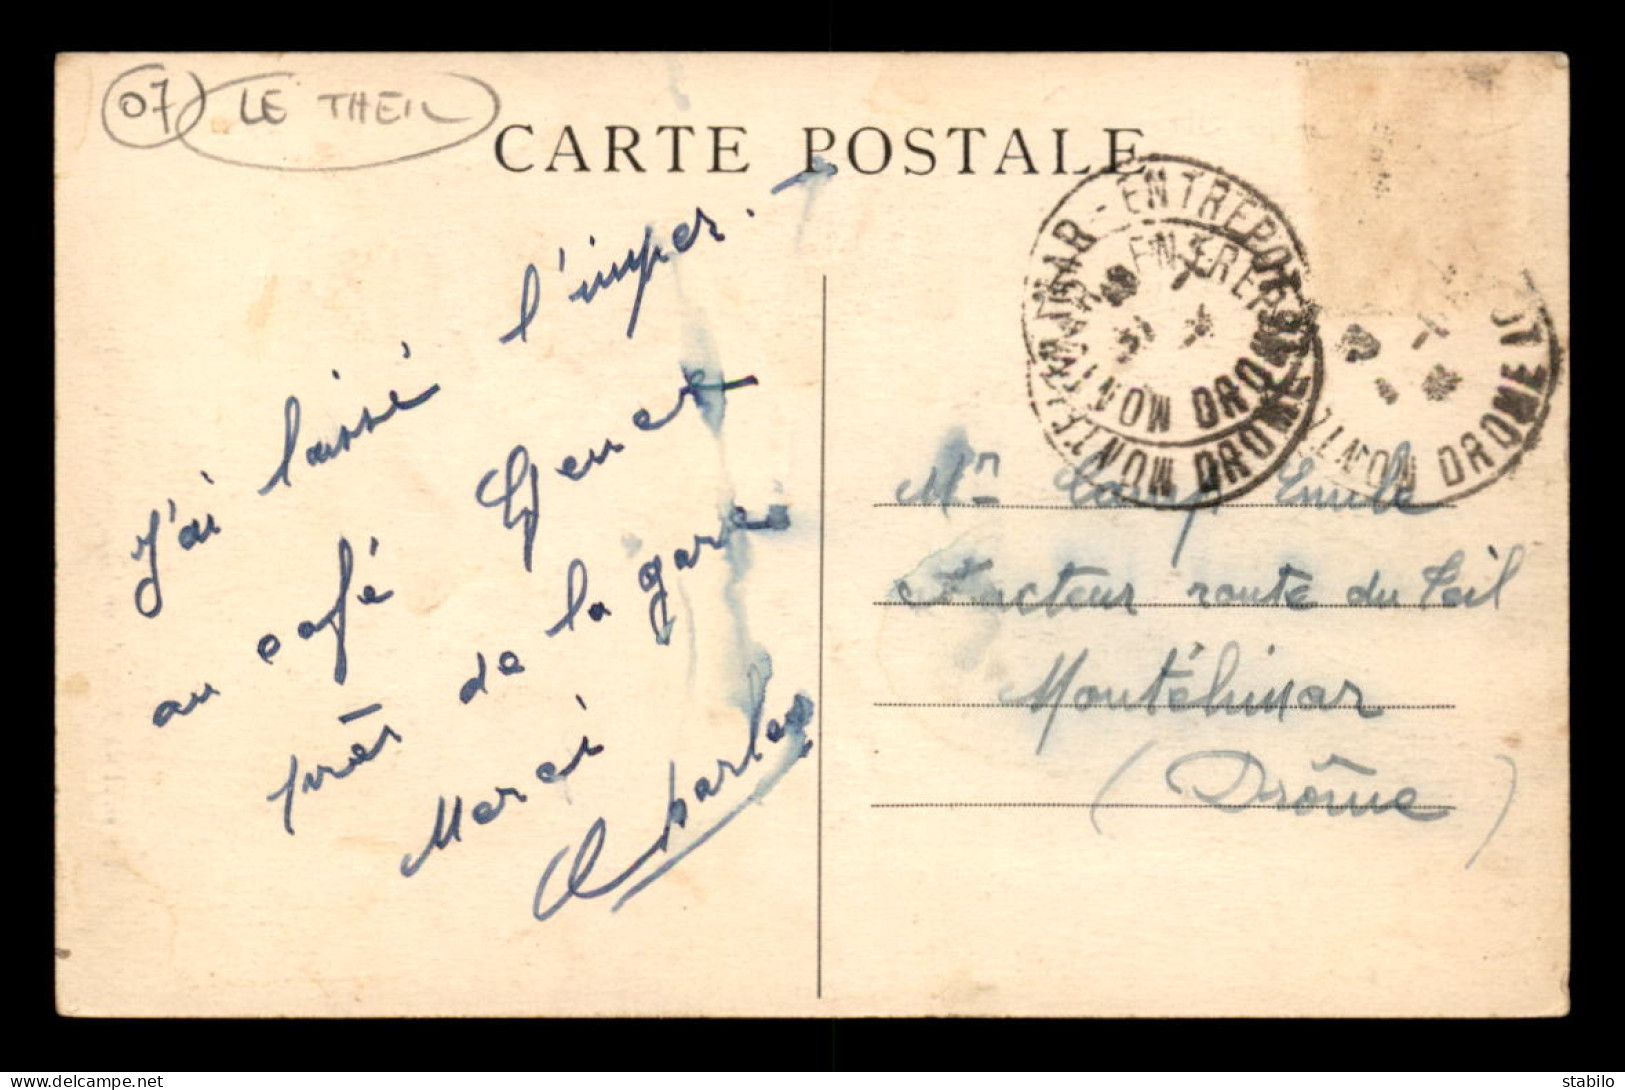 07 LE THEIL
CARTE POSTALE
J'ai laissé l'imper. -
au café Genet
près de la gare
Merci
MONTELIMAR - ENTREPOT
DROME
ENTREPOT
MONT DROME
OT
MONT DROME
Mr Emile
Facteur route du Teil
Montélimar
(Drôme)
stabilo